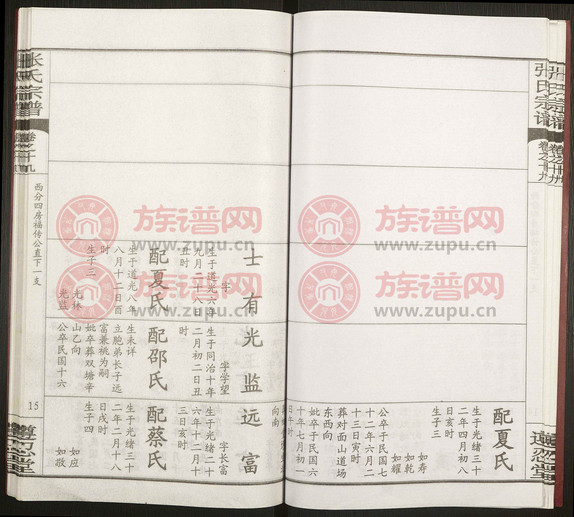 张氏宗谱
卷之十九
遵忍堂
配夏氏
生于光绪三十
二年四月初八
日亥时
生子三
如寿
如乾
如耀
公卒于民国七
十二年六月二
十三日寅时
葬对面山道场
东西向
妣卒于民国六
十年七月初一
族谱网
www.zupu.cn
族谱网
www.zupu.cn
张氏宗谱
卷之十九
西分四房福传公直下一支
15
士有
字
生于道光六年
九月二十八日
丑时
配夏氏
生于道光八年
八月十二日酉
时
生子三
光林
光监
光监
字学望
生于同治十年
二月初二日丑
时
配邵氏
生年未详
立胞弟长子远
富兼桃为嗣
妣卒葬双塘辛
山乙向
公卒民国十六
远富
字长富
生于光绪二十
六年十二月十
三日亥时
配蔡氏
生于光绪三十
二年二月十八
日戌时
生子四
如应
如敬
族谱网
www.zupu.cn
族谱网
www.zupu.cn